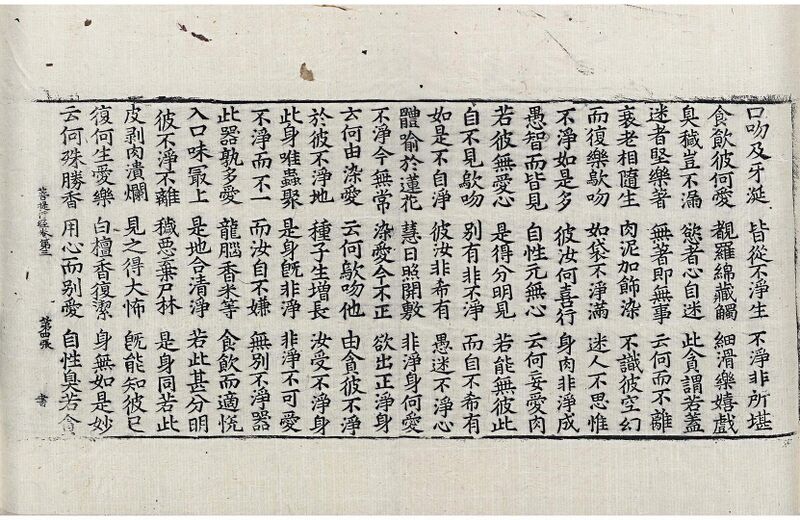 口吻及牙涎 皆從不淨生 不淨非所堪
食飲彼何愛 覩羅綿藏觸 細滑樂嬉戲
臭穢豈不漏 慾者心自迷 此貪謂若蓋
迷者堅樂著 無著即無事 云何而不離
衰老相隨生 肉泥加飾染 不識彼空幻
而復樂歍吻 如袋不淨滿 迷人不思惟
不淨如是多 彼汝何喜行 身肉非淨成
愚智而皆見 自性元無心 云何妄愛肉
若彼無愛心 是得分明見 若能無彼此
自不見歍吻 別有非不淨 而自不希有
如是不自淨 彼汝非希有 愚迷不淨心
體喻於蓮花 慧日照開敷 非淨身何愛
不淨今無常 染愛今不正 欲出正淨身
云何由染愛 云何歍吻他 由貪彼不淨
於彼不淨地 種子生增長 汝受不淨身
此身唯蟲聚 是身既非淨 非淨不可愛
不淨而不一 而汝自不嫌 無別不淨器
此器孰多愛 龍腦香米等 食飲而適悅
入口味最上 是地合清淨 若此甚分明
彼不淨不離 穢惡棄尸林 是身同若此
皮剥肉潰爛 見之得大怖 既能知彼已
復何生愛樂 白檀香復潔 身無如是妙
云何殊勝香 用心而別愛 自性臭若貪
菩提行經卷第三 第四張